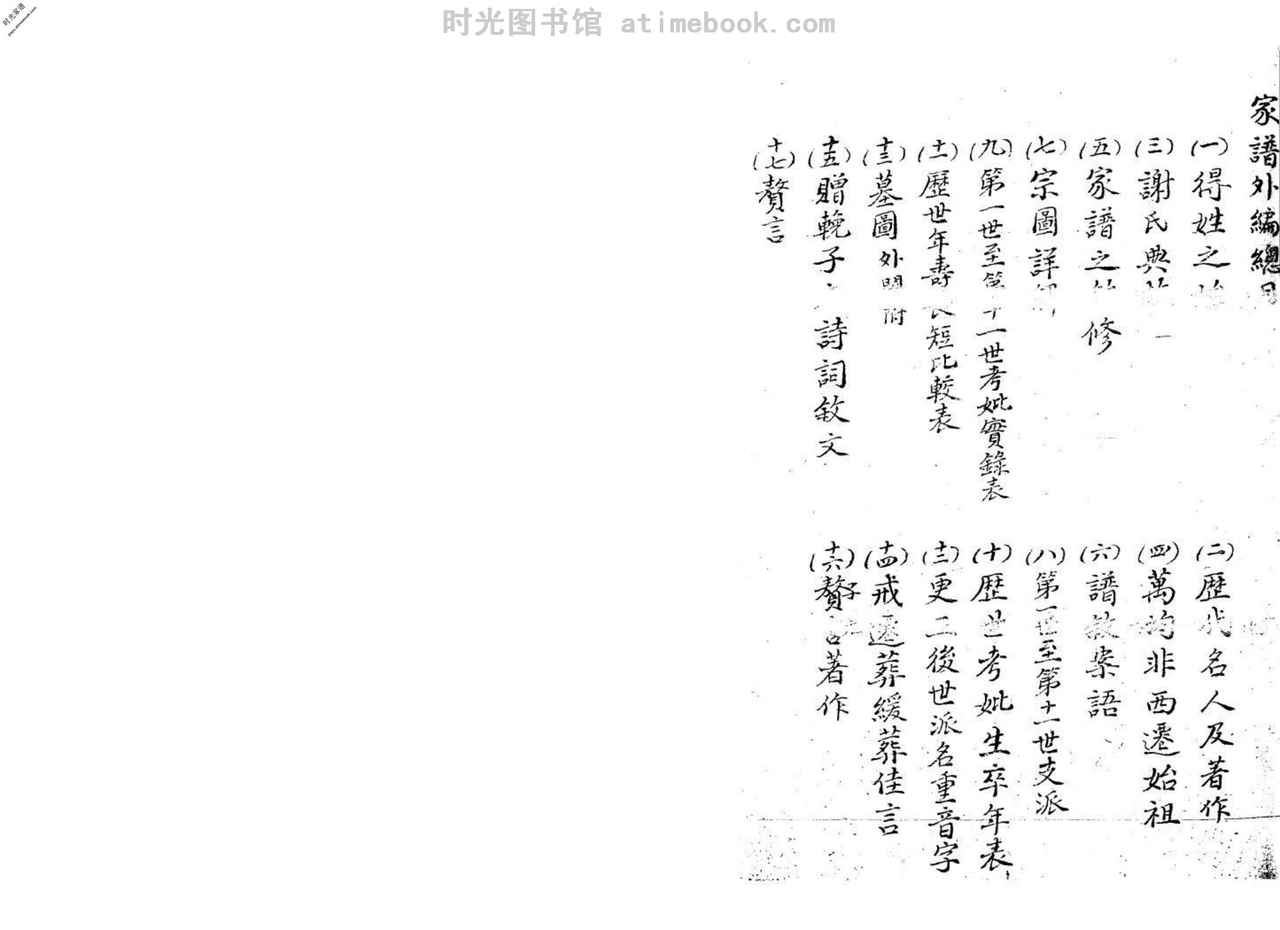 时光图书馆 atimebook.com
时光家谱
www.atimebook.com
家譜外編總目
(一)得姓之
(二)歷代名人及著作
(三)謝氏典
(四)萬均非西遷始祖
(五)家譜之 修
(六)譜敘案語
(七)宗圖詳
(八)第一世至第十一世支派
(九)第一世至第十一世考妣實錄表
(十)歷世考妣生卒年表
(十一)歷世年壽長短比較表
(十二)更正後世派名重音字
(十三)墓圖 外 附
(十四)戒遷葬緩葬佳言
(十五)贈輓子 詩詞敘文
(十六)贅 著作
(十七)贅言